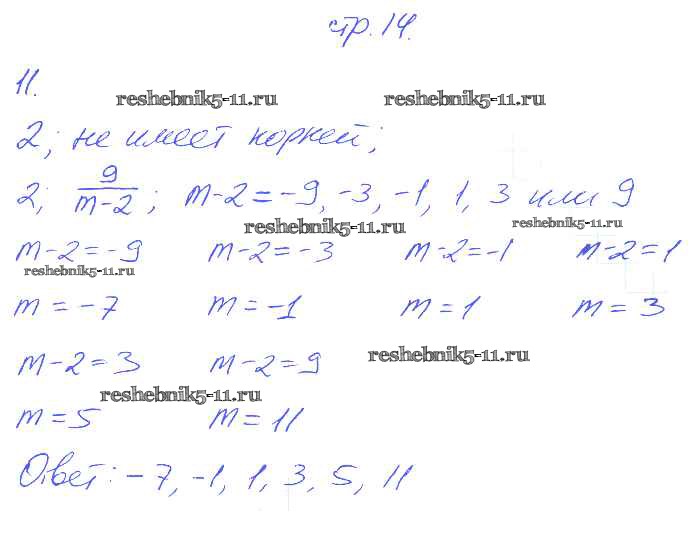 стр. 14.
11.
reshebnik5-11.ru reshebnik5-11.ru
2; не имеет корней;
2; 9/(m-2); m-2=-9, -3, -1, 1, 3 или 9
reshebnik5-11.ru reshebnik5-11.ru
m-2=-9 m-2=-3 m-2=-1 m-2=1
reshebnik5-11.ru
m=-7 m=-1 m=1 m=3
m-2=3 m-2=9 reshebnik5-11.ru
reshebnik5-11.ru
m=5 m=11
Ответ: -7, -1, 1, 3, 5, 11